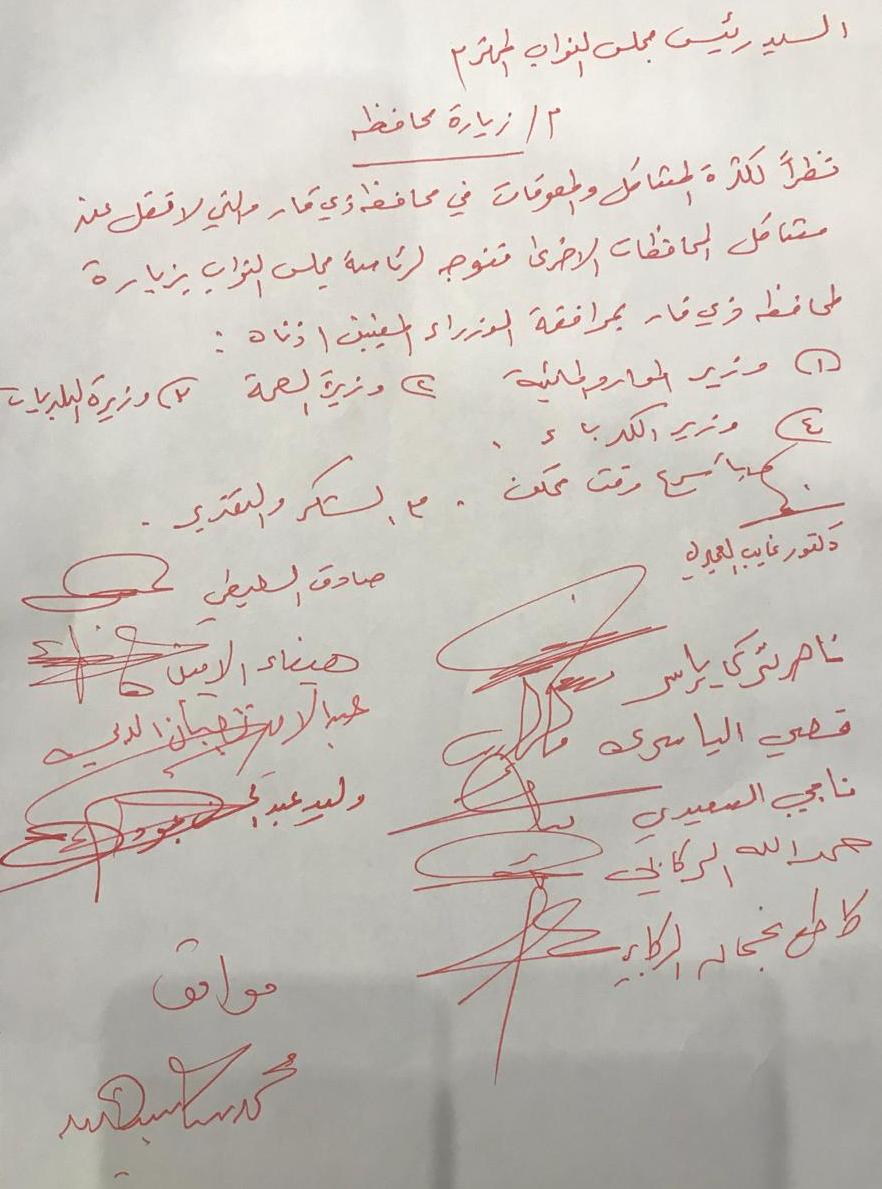 السيد رئيس مجلس النواب المحترم
م / زيارة محافظه
نظراً لكثرة المشاكل والمعوقات في محافظه ذي قار والتي لا تقل عن
مشاكل المحافظات الاخرى نتوجه لرئاسة مجلس النواب بزيارة
لمحافظه ذي قار بمرافقة الوزراء المعنيين ادناه :
① وزير الموارد المائية ② وزيرة الصحة ③ وزيرة البلديات
④ وزير الكهرباء .
بأسرع وقت ممكن . مع الشكر والتقدير .
دكتور غايب العميري
صادق السليطي
ناصر تركي ياسر
هيفاء الامين
قصي الياسري
عبد الامير تعيبان الدبي
ناجي السعيدي
وليد عبد
حمد الله الركابي
كاطع نجمان الركابي
موافق
محمد